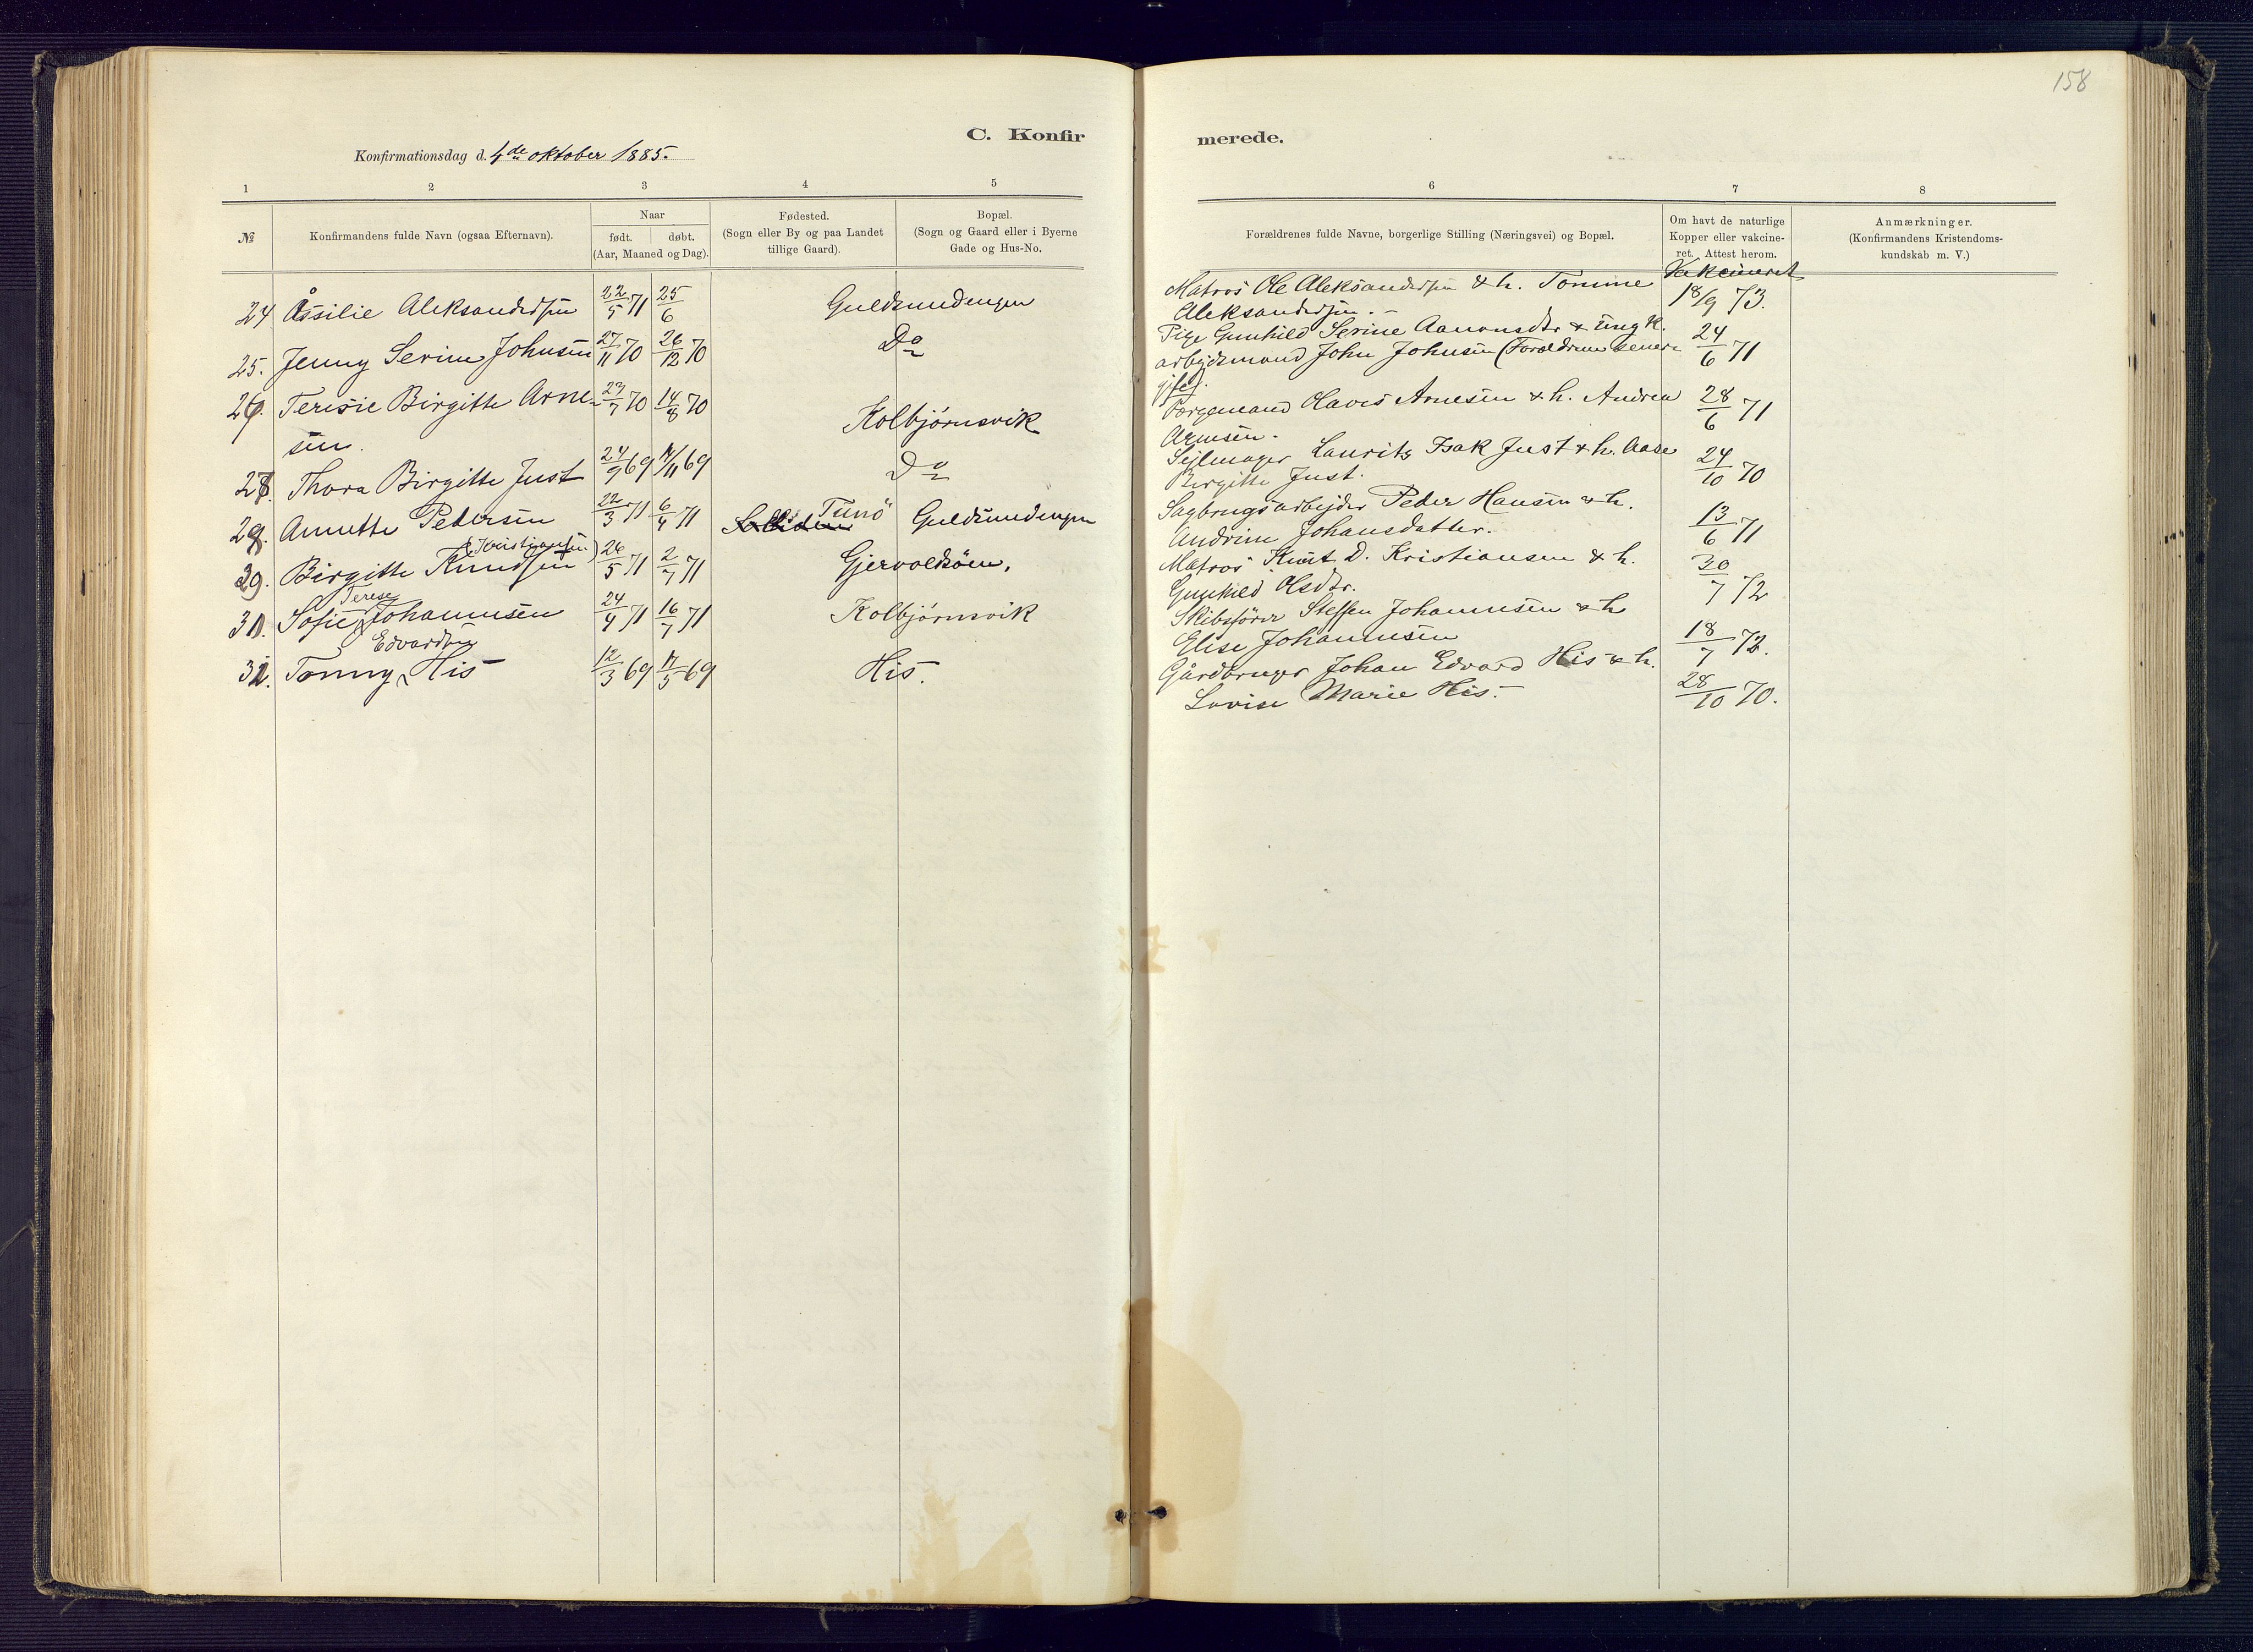 158
C. Konfirmerede.
Konfirmationsdag d. 4de oktober 1885.
1 2 3 4 5 6 7 8
№
Konfirmandens fulde Navn (ogsaa Efternavn).
Naar
født. døbt.
(Aar, Maaned og Dag).
Fødested.
(Sogn eller By og paa Landet
tillige Gaard).
Bopæl.
(Sogn og Gaard eller i Byerne
Gade og Hus-No.
Forældrenes fulde Navne, borgerlige Stilling (Næringsvei) og Bopæl.
Om havt de naturlige
Kopper eller vakcine-
ret. Attest herom.
Anmærkninger.
(Konfirmandens Kristendoms-
kundskab m. V.)
Vakcineret
24 Åssilie Aleksandersen 22/5 71 25/6 Guldsmedengen Matros Ole Aleksandersen & h. Tomine 18/9 73.
Aleksandersen.
25. Jenny Serine Johnsen 27/11 70 26/12 70 Do Pige Gunhild Serine Aanonsdtr & ungk. 24/6 71
arbejdsmand John Johnsen (Forældrene senere
gift).
26. Teresie Birgitte Arne- 23/7 70 14/8 70 Kolbjörnsvik Olaves Arnesen & h. Andrea 28/6 71
sen. Arnesen.
Thora Birgitte Just 24/9 69 14/11 69 Do Sejlmager Laurits Isak Just & h. Aase 24/10 70
Birgitte Just.
Annette Petersen 22/3 71 6/4 71 Tunö Guldsmedengen Sagbrugsarbejder Peder Hansen & h. 13/6 71
Andrine Johansdatter.
(Kristiansen)
Birgitte Knudsen 26/5 71 2/7 71 Gjervoldsöen. Matros Knut D. Kristiansen & h. 30/7 72
Gunhild Olsdtr.
Terese
Sofie Johannesen 24/4 71 16/7 71 Kolbjörnsvik Skibsförer Steffen Johannesen & h 18/7 72.
Elise Johannesen
Edvardsen
Tonny His 12/3 69 17/5 69 His. Gårdbruger Johan Edvard His & h. 28/10 70.
Lovise Marie His.